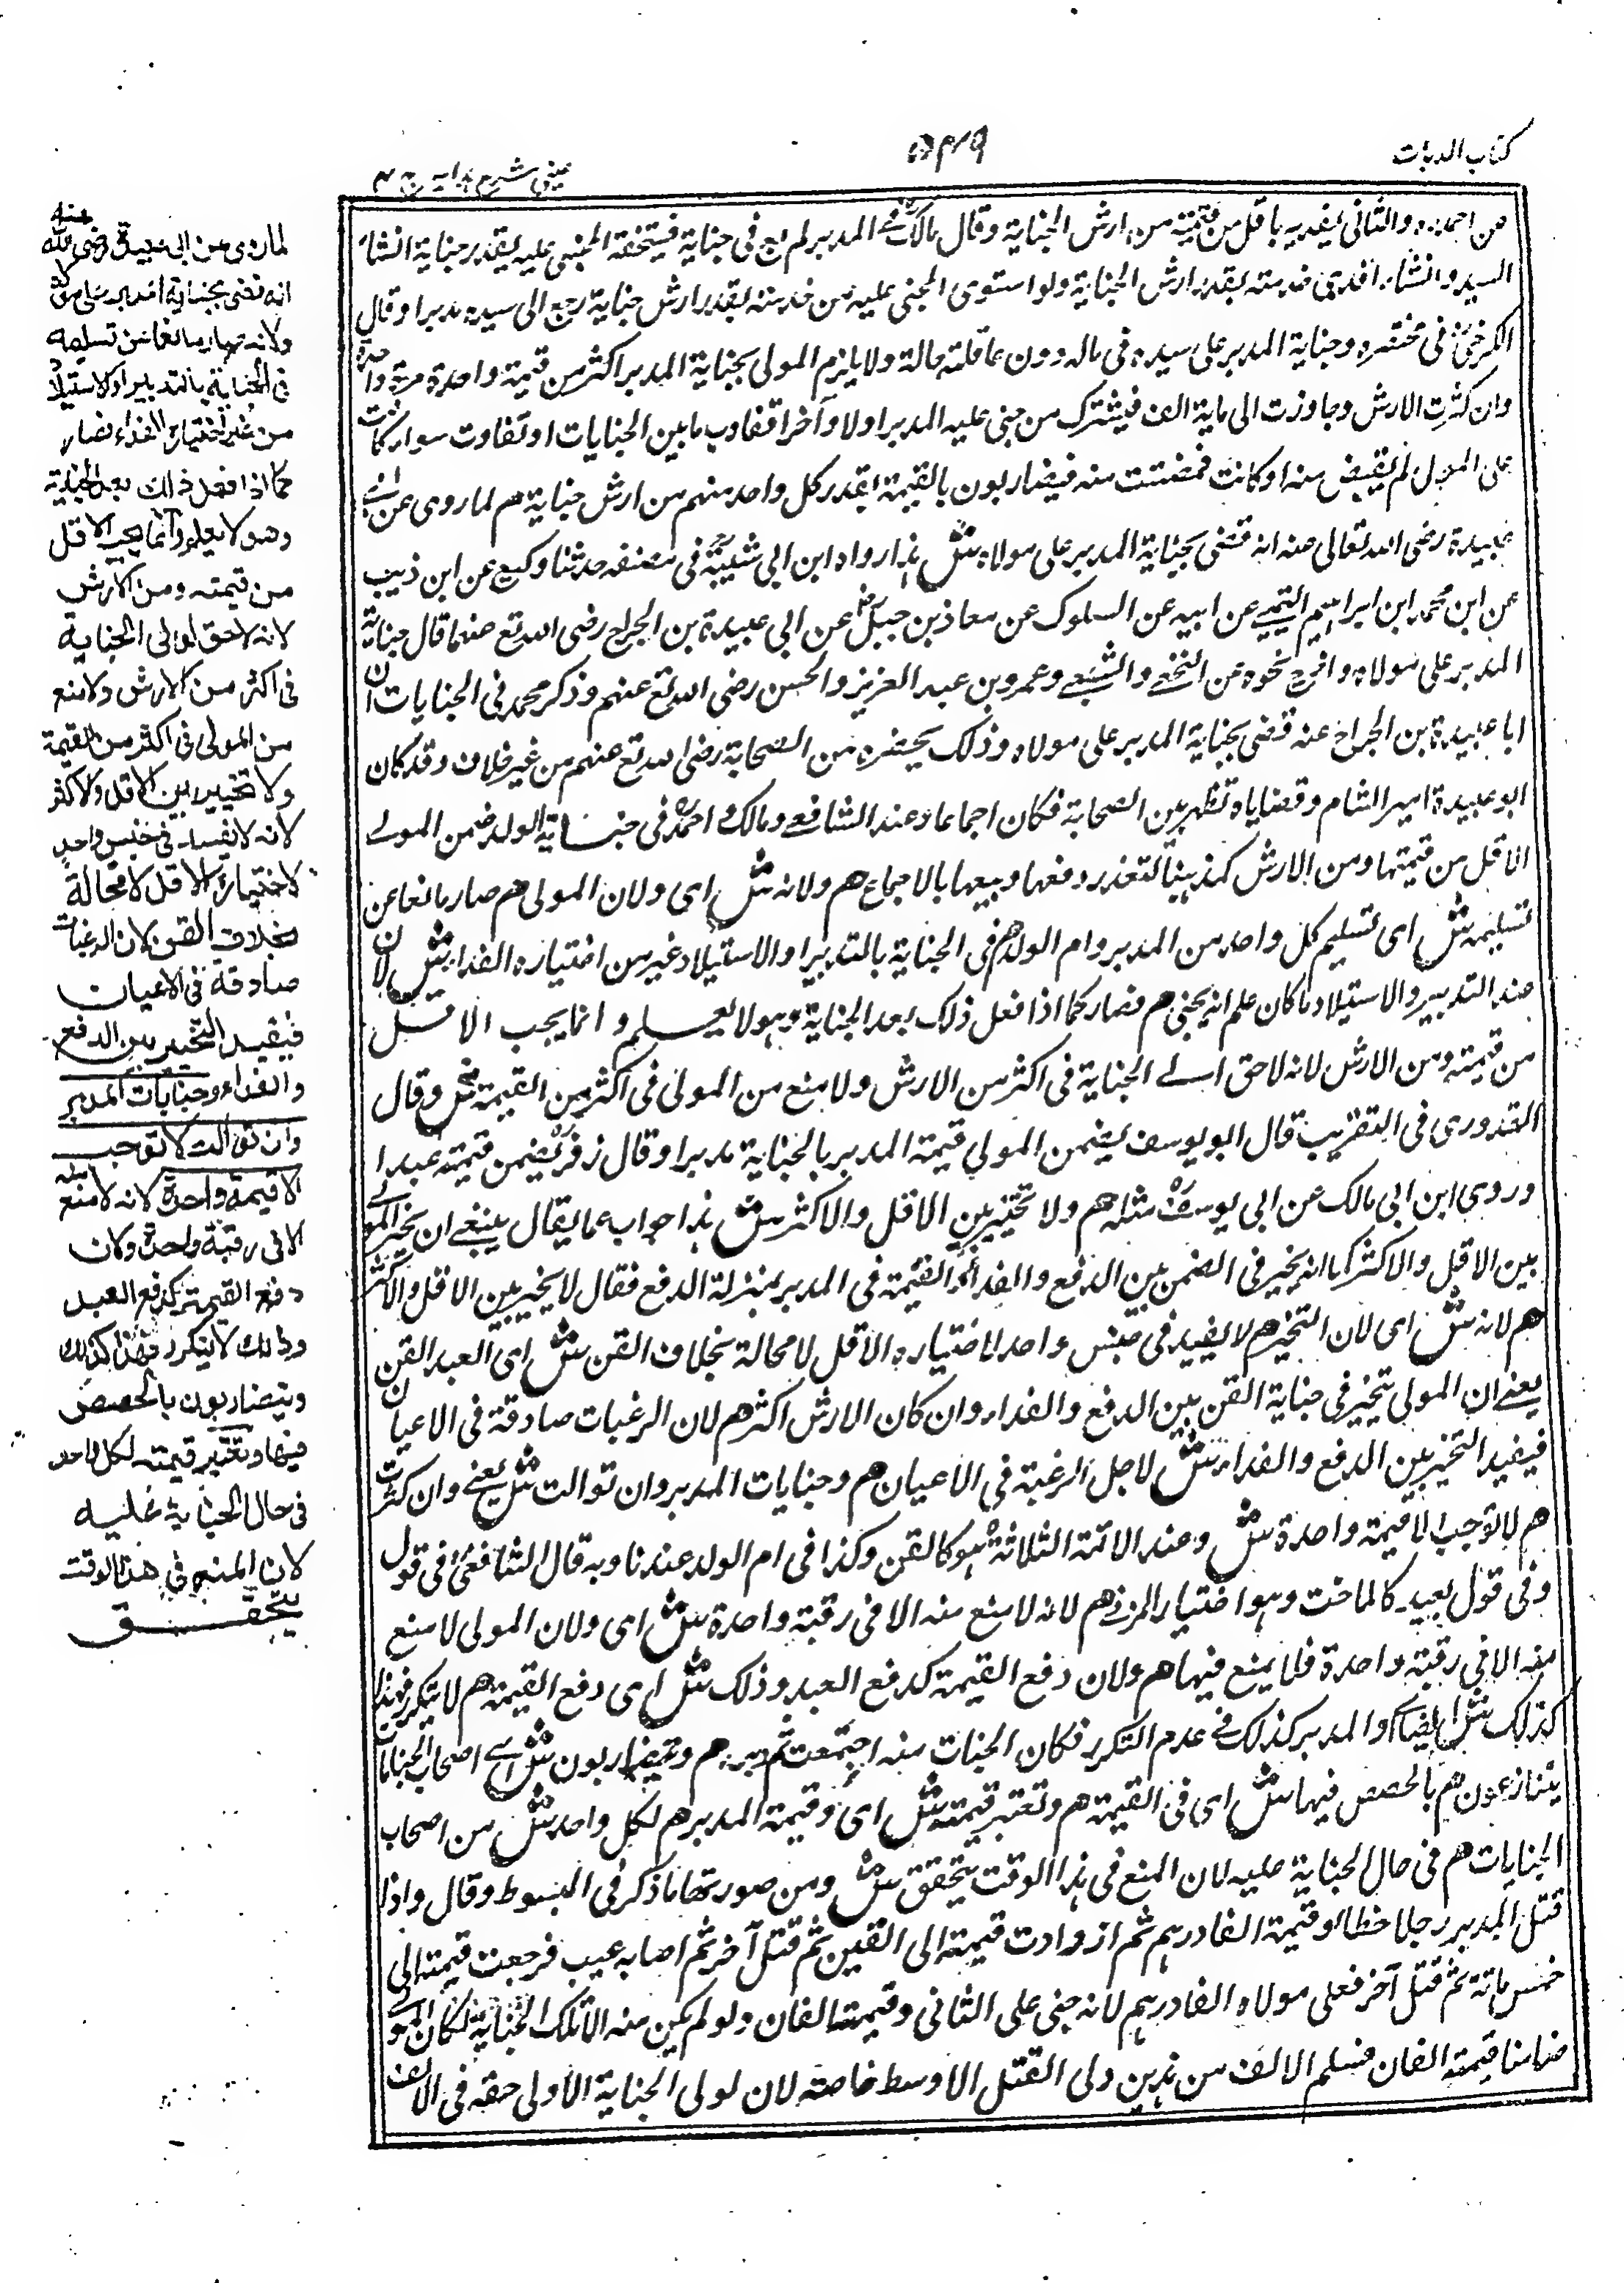 كتاب الديات
٥٣٩
عينى شرح هدايه ج ٤
من احمد والثانى يفديه باقل من قيمته من ارش الجناية وقال مالك المدبر لم فى جناية المجنى عليه بقدر جناية انشاء
السيد وانشاء افدى خدمته بقدر ارش الجناية ولو استوى المجنى عليه من خدمته بقدر ارش جناية رجع الى سيده مدبرا وقال
الكرخى فى مختصره وجناية المدبر على سيده فى ماله دون عاقلته حالة ولا يلزم المولى بجناية المدبر اكثر من قيمة واحدة مرة واحدة
وان كثرت الارش وجاوزت الى ماية الف فيشترك من جنى عليه المدبر اولا وآخرا ما بين الجنايات او تفاوت سواء كانت
على المولى لم يقبض منه او كانت قبضت منه فيضاربون بالقيمة بقدر كل واحد منهم من ارش جناية هم لما روى عن ابى
عبيدة رضى الله تعالى عنه انه قضى بجناية المدبر على مولاه ش هذا رواه ابن ابى شيبة فى مصنفه حدثنا وكيع عن ابن ذيب
عن ابن محمد ابن ابراهيم التيمى عن ابيه عن السلوك عن معاذ بن جبل عن ابى عبيدة بن الجراح رضى الله تع عنهما قال جناية
المدبر على مولاه واخرج نحوه عن النخعى والشعبى وعمرو بن عبد العزيز والحسن رضى الله تع عنهم وذكر محمد فى الجنايات ان
ابا عبيدة بن الجراح عنه قضى بجناية المدبر على مولاه وذلك بحضرة من الصحابة رضى الله تع عنهم من غير خلاف وقد كان
ابو عبيدة امير الشام وقضاياه تظهر بين الصحابة فكان اجماعا وعند الشافعى ومالك واحمد فى جناية الولد ضمن المولى
الاقل من قيمتها ومن الارش كمذهبنا لتعذر دفعها وبيعها بالاجماع هم ولانه ش اى ولان المولى هم صار مانعا عن
تسليمه ش اى تسليم كل واحد من المدبر وام الولد هم فى الجناية بالتدبير او الاستيلاد غير من اختياره الفداء ش لان
عند التدبير والاستيلاد ما كان علم انه يجنى هم فصار كما اذا فعل ذلك بعد الجناية وهو لا يعلم وانما يجب الاقل
من قيمته ومن الارش لانه لا حق الى الجناية فى اكثر من الارش ولا منع من المولى فى اكثر من القيمة ش وقال
القدورى فى التقريب قال ابو يوسف يضمن المولى قيمة المدبر بالجناية مدبرا وقال زفر يضمن قيمته عبدا
وروى ابن ابى مالك عن ابى يوسف مثله هم ولا تخيير بين الاقل والاكثر ش هذا جواب عما يقال ينبغى ان يخير المولى
بين الاقل والاكثر كما انه يخير فى الضمن بين الدفع والفداء القيمة فى المدبر بمنزلة الدفع فقال لا يخير بين الاقل والاكثر
هم لانه ش اى لان التخير هم لا يفيد فى جنس واحد لاختياره الاقل لا محالة بخلاف القن ش اى العبد القن
يعنى ان المولى يتخير فى جناية القن بين الدفع والفداء وان كان الارش اكثر هم لان الرغبات صادقة فى الاعيان
فيفيد التخير بين الدفع والفداء ش لاجل الرغبة فى الاعيان هم وجنايات المدبر وان توالت ش يعنى وان كثرت
هم لا توجب الا قيمة واحدة ش وعند الائمة الثلاثة هو كالقن وكذا فى ام الولد عندنا وبه قال الشافعى فى قول
وفى قول بعيد وهو اختيار المزنى هم لانه لا منع منه الا فى رقبة واحدة ش اى ولان المولى لا منع
منه الا فى رقبة واحدة فلا يمنع فيها هم ولان دفع القيمة كدفع العبد وذلك ش اى دفع القيمة هم لا يتكرر فهذا
كذلك ش ايضا والمدبر كذلك فى عدم التكرر فكان الجنات منه اجتمعت ثم دبره هم ويتضاربون ش اى اصحاب الجنايات
يتنازعون هم بالحصص فيها ش اى فى القيمة هم وتعتبر قيمته ش اى وقيمة المدبر هم لكل واحد ش من اصحاب
الجنايات هم فى حال الجناية عليه لان المنع فى هذا الوقت يتحقق ش ومن صورتها ما ذكر فى المبسوط وقال واذا
قتل المدبر رجلا خطاء وقيمة الف درهم ثم ازدادت قيمته الى الفين ثم قتل آخر ثم اصابه عيب فرجعت قيمته الى
خمس مائة ثم قتل آخر فعلى مولاه الفا درهم لانه جنى على الثانى وقيمته الفان ولو لم يكن منه الا تلك الجناية لكان المولى
ضامنا قيمته الفان فسلم الالف من هذين ولى القتل الاوسط خاصته لان لولى الجناية الاولى حقه فى الالف
لما روى عن ابى عبيدة رضى الله عنه
انه قضى بجناية المدبر على مولاه
ولانه صار مانعا عن تسليمه
فى الجناية بالتدبير او الاستيلاد
من غير اختياره الفداء فصار
كما اذا فعل ذلك بعد الجناية
وهو لا يعلم وانما يجب الاقل
من قيمته ومن الارش
لانه لا حق لولى الجناية
فى اكثر من الارش ولا منع
من المولى فى اكثر من القيمة
ولا تخيير بين الاقل والاكثر
لانه لا يفيد فى جنس واحد
لاختياره الاقل لا محالة
بخلاف القن لان الرغبات
صادقة فى الاعيان
فيفيد التخيير بين الدفع
والفداء وجنايات المدبر
وان توالت لا توجب
الا قيمة واحدة لانه لا منع منه
الا فى رقبة واحدة ولان
دفع القيمة كدفع العبد
وذلك لا يتكرر فهذا كذلك
ويتضاربون بالحصص
فيها وتعتبر قيمته لكل واحد
فى حال الجناية عليه
لان المنع فى هذا الوقت
يتحقق